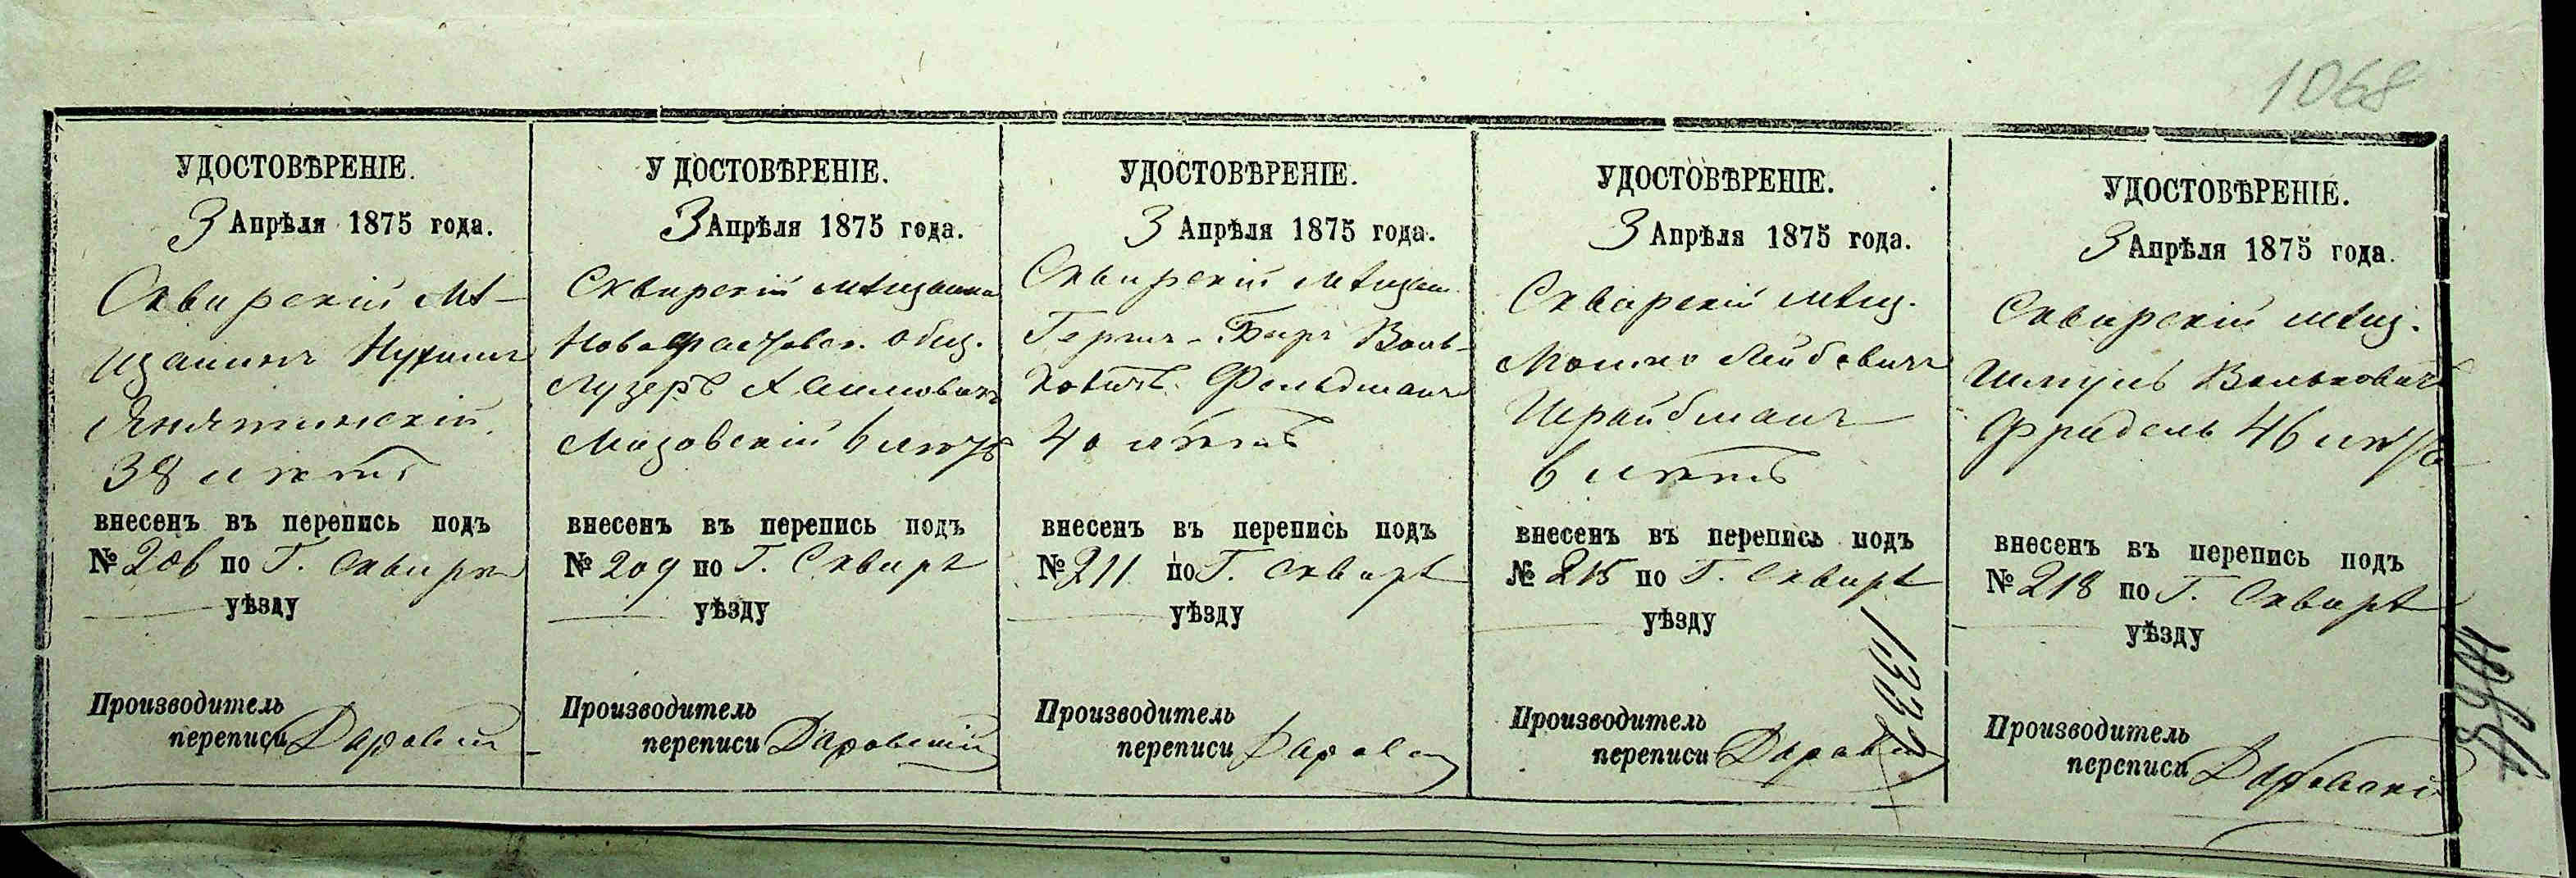 1068
УДОСТОВѢРЕНІЕ.
3 Апрѣля 1875 года.
Сквирскій мѣ-
щанинъ Нухимъ
38 лѣтъ
внесенъ въ перепись подъ
№ 206 по Г. Сквирѣ
уѣзду
Производитель
переписи
УДОСТОВѢРЕНІЕ.
3 Апрѣля 1875 года.
Сквирскій мѣщанинъ
Новофастовск. общ.
Лузеръ Хаимовичъ
Мазовскій 6 лѣтъ
внесенъ въ перепись подъ
№ 209 по Г. Сквирѣ
уѣзду
Производитель
переписи
УДОСТОВѢРЕНІЕ.
3 Апрѣля 1875 года.
Сквирскій мѣщан.
Герш-Беръ Воль-
ковичъ Фельдманъ
40 лѣтъ
внесенъ въ перепись подъ
№ 211 по Г. Сквирѣ
уѣзду
Производитель
переписи
УДОСТОВѢРЕНІЕ.
3 Апрѣля 1875 года.
Сквирскій мѣщ.
Мошко Лейбовичъ
Шрайбманъ
6 лѣтъ
внесенъ въ перепись подъ
№ 215 по Г. Сквирѣ
уѣзду
1332
Производитель
переписи
УДОСТОВѢРЕНІЕ.
3 Апрѣля 1875 года.
Сквирскій мѣщ.
Шмуль Вольковичъ
Фридель 46 лѣтъ
внесенъ въ перепись подъ
№ 218 по Г. Сквирѣ
уѣзду
Производитель
переписи